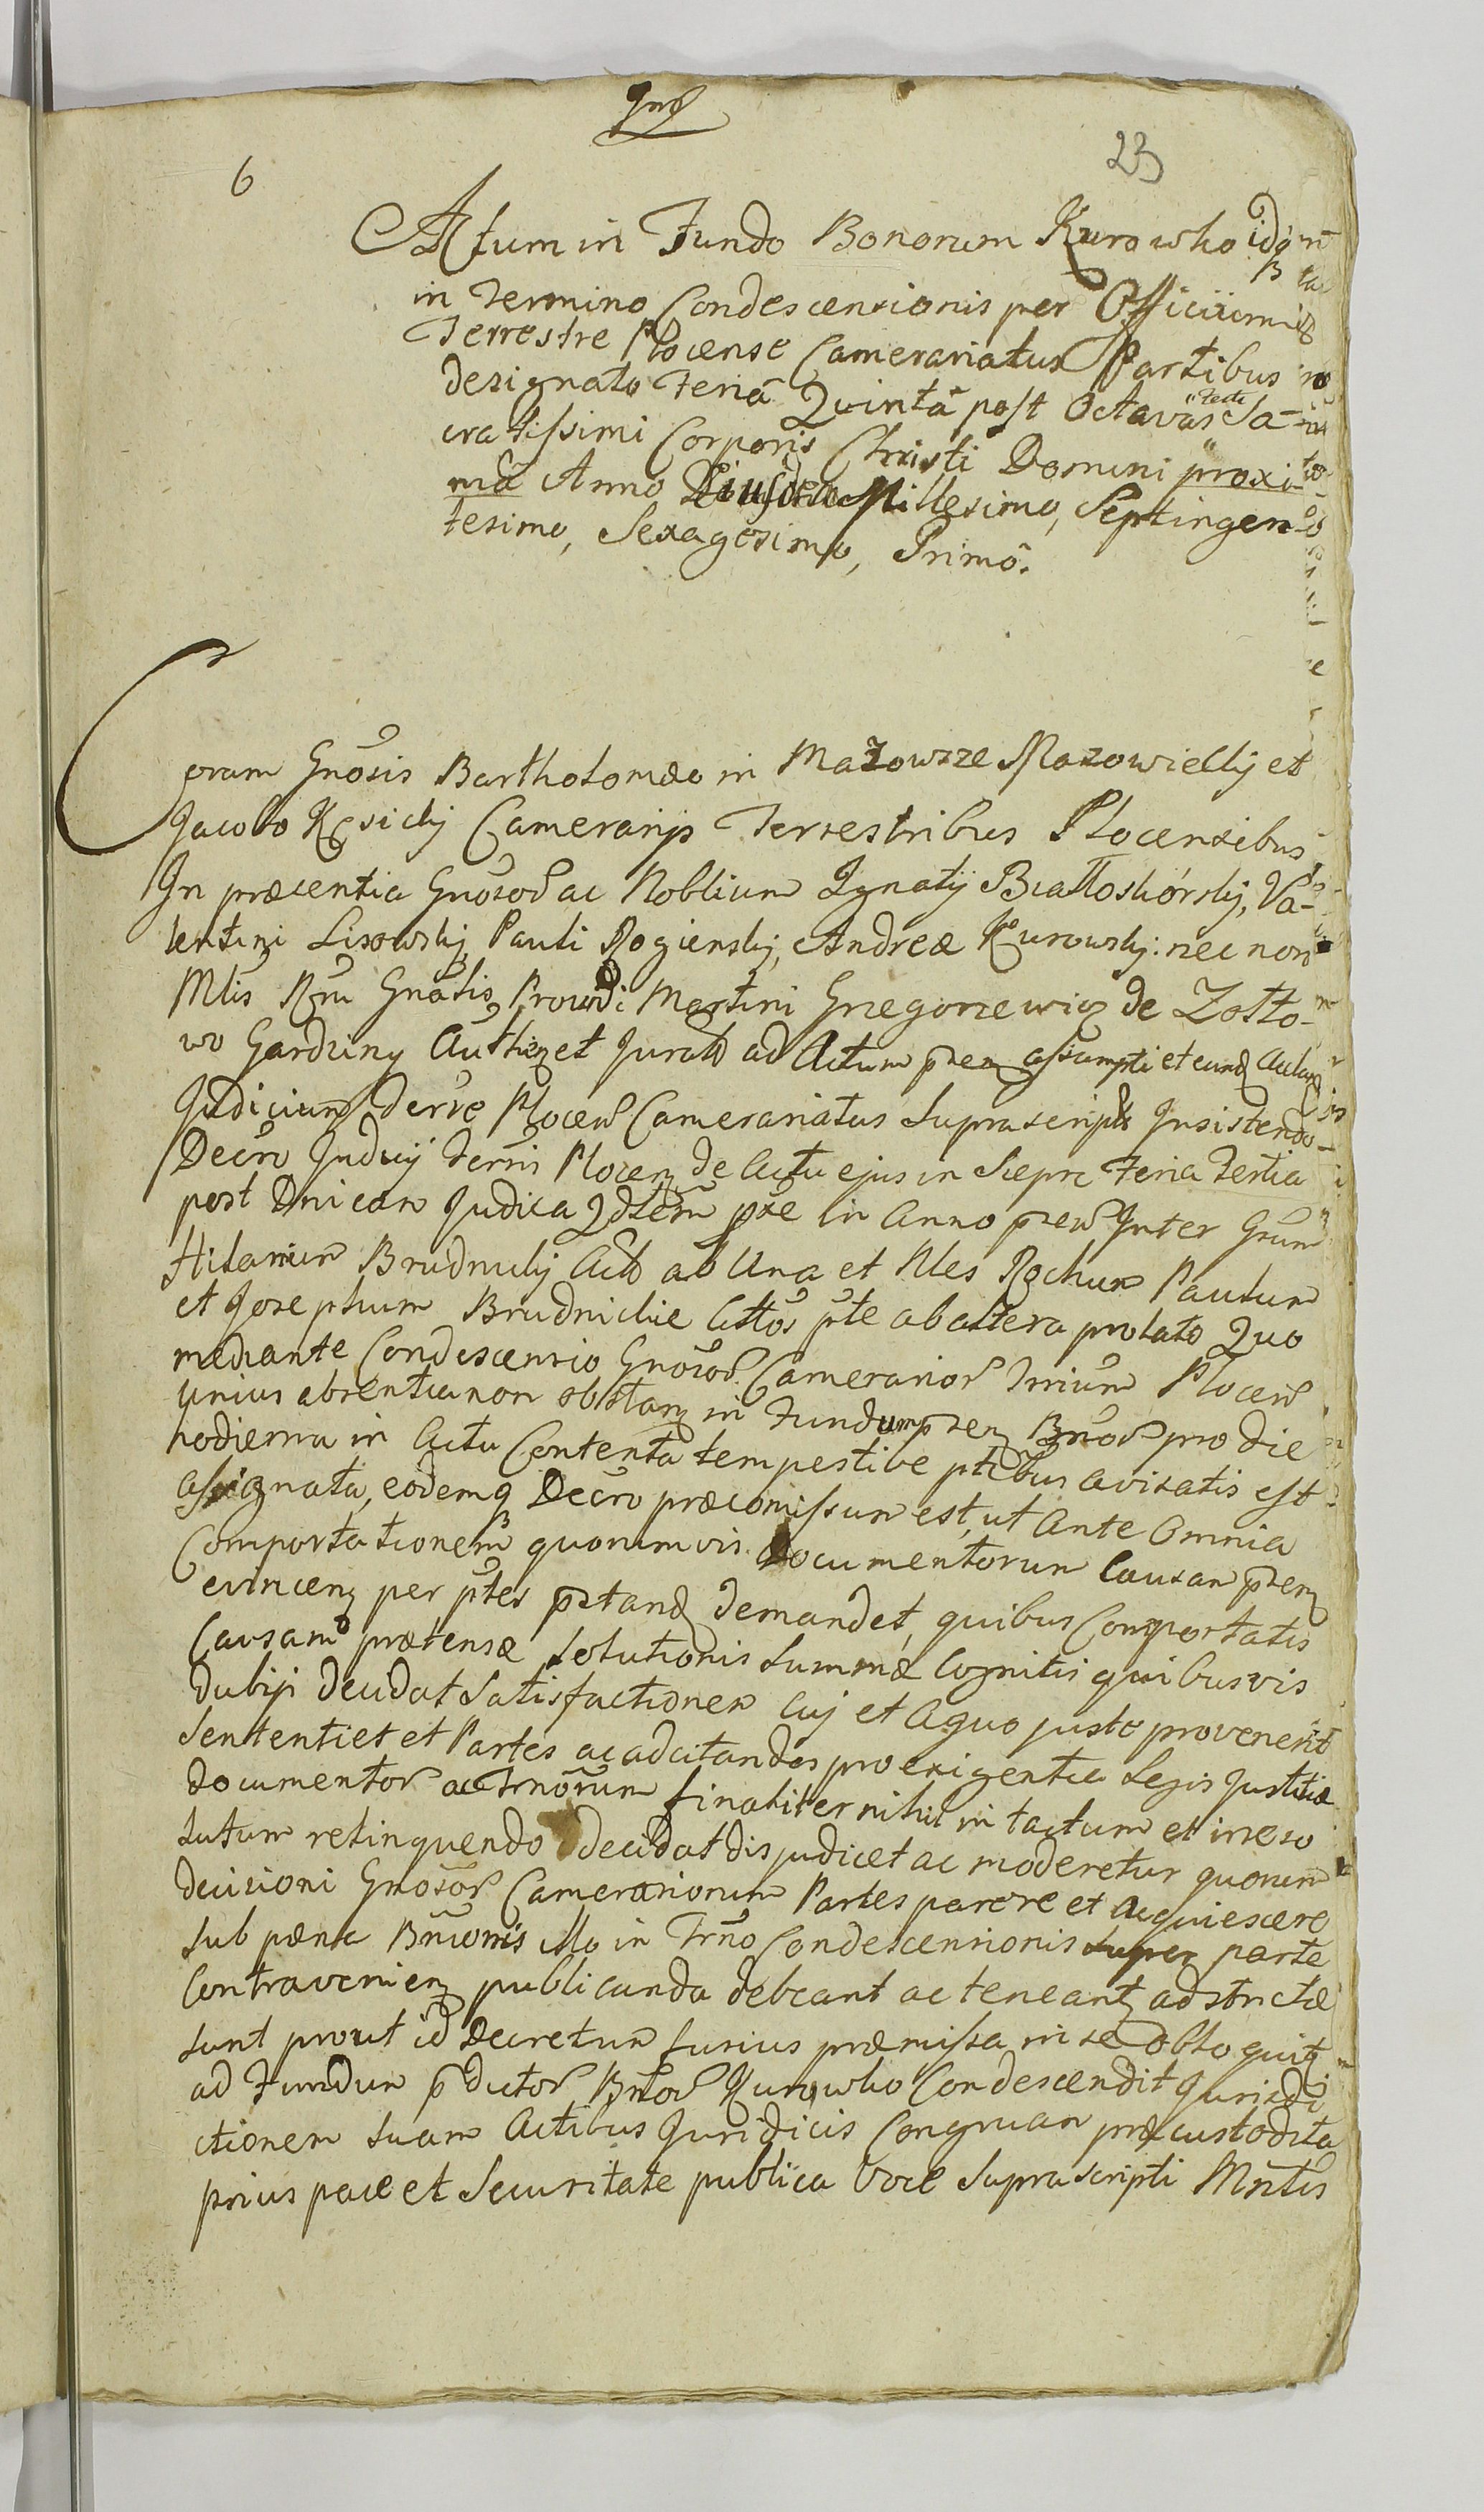 Ind
6
23
Actum in Fundo Bonorum Kurowko idq
in Termino Condescensionis per Officium
Terrestre Plocense Camerariatus Partibus
designato Feria Quinta post Octavas Festi Sa-
cratissimi Corporis Christi Domini proxi-
ma Anno Eiusdem Millesimo, Septingen-
tesimo, Sexagesimo, Primo.
Coram Gnosis Bartholomæo in Mazowsze Mazowieckij et
Jacobo Kęsickij Camerarijs Terrestribus Plocensibus
In præcentia Gnosor ac Noblium Ignatij Białłoskórskij, Va-
lentini Lisowskij, Pauli Rogienskij, Andreæ Kurowskij: nec non
Mlis Rm Gnalis, Prowidi Martini Gregorzewicz de Zotto-
wo Garduny Authen et Jurato ad Actum præn assumpti et eund Actum
Judicium Terre Plocen Camerariatus Suprascripti Insistendo
Decro Judicij Terris Plocen de Actu ejus in Sieprc Feria Tertia
post Dnicam Judica Qdtem pxe in Anno præn Inter Gnum
Hilarium Brudnickij Act ab Una et Nles Rochum Paulum
et Josephum Brudnickie Cittos pte ab altera prolato Quo
mediante Condescensio Gnosor Camerarior Trrium Plocen
Unius absentia non obstan in Fundum præn Bnor pro die
hodierna in Actu Contenta tempestive ptibus avisatis est
assignata, eodemq Decro præcomissum est, ut Ante Omnia
Comportationem quorumvis Documentorum Causam præn
evincen per ptes præstand demandet, quibus Comportatis
Causam prætensæ Solutionis Summæ Cognitis quibusvis
Dubijs decidat Satisfactionem Cuj et Aquo juste provenerit
Sententiet et Partes ac adcitandas pro exigentia Legis Justitiæ
Documentor ac Trnorum finaliter nihil in tactum et irreso
lutum relinquendo decidat disjudicet ac moderetur quorum
decisioni Gnosor Camerariorum Partes parere et acquiescere
sub pæna Bnionis illo in Trno Condescensionis super parte
Contravenien publicanda debeant ac teneant adstrictæ
sunt prout id Decretum fusius præmissa in se obloquit
ad Fundum pdictor Bnor Kurowko Condescendit Jurisdi
ctionem suam Actibus Juridicis Congruam præcustodita
prius pace et Securitate publica Voce Suprascripti Mntlis